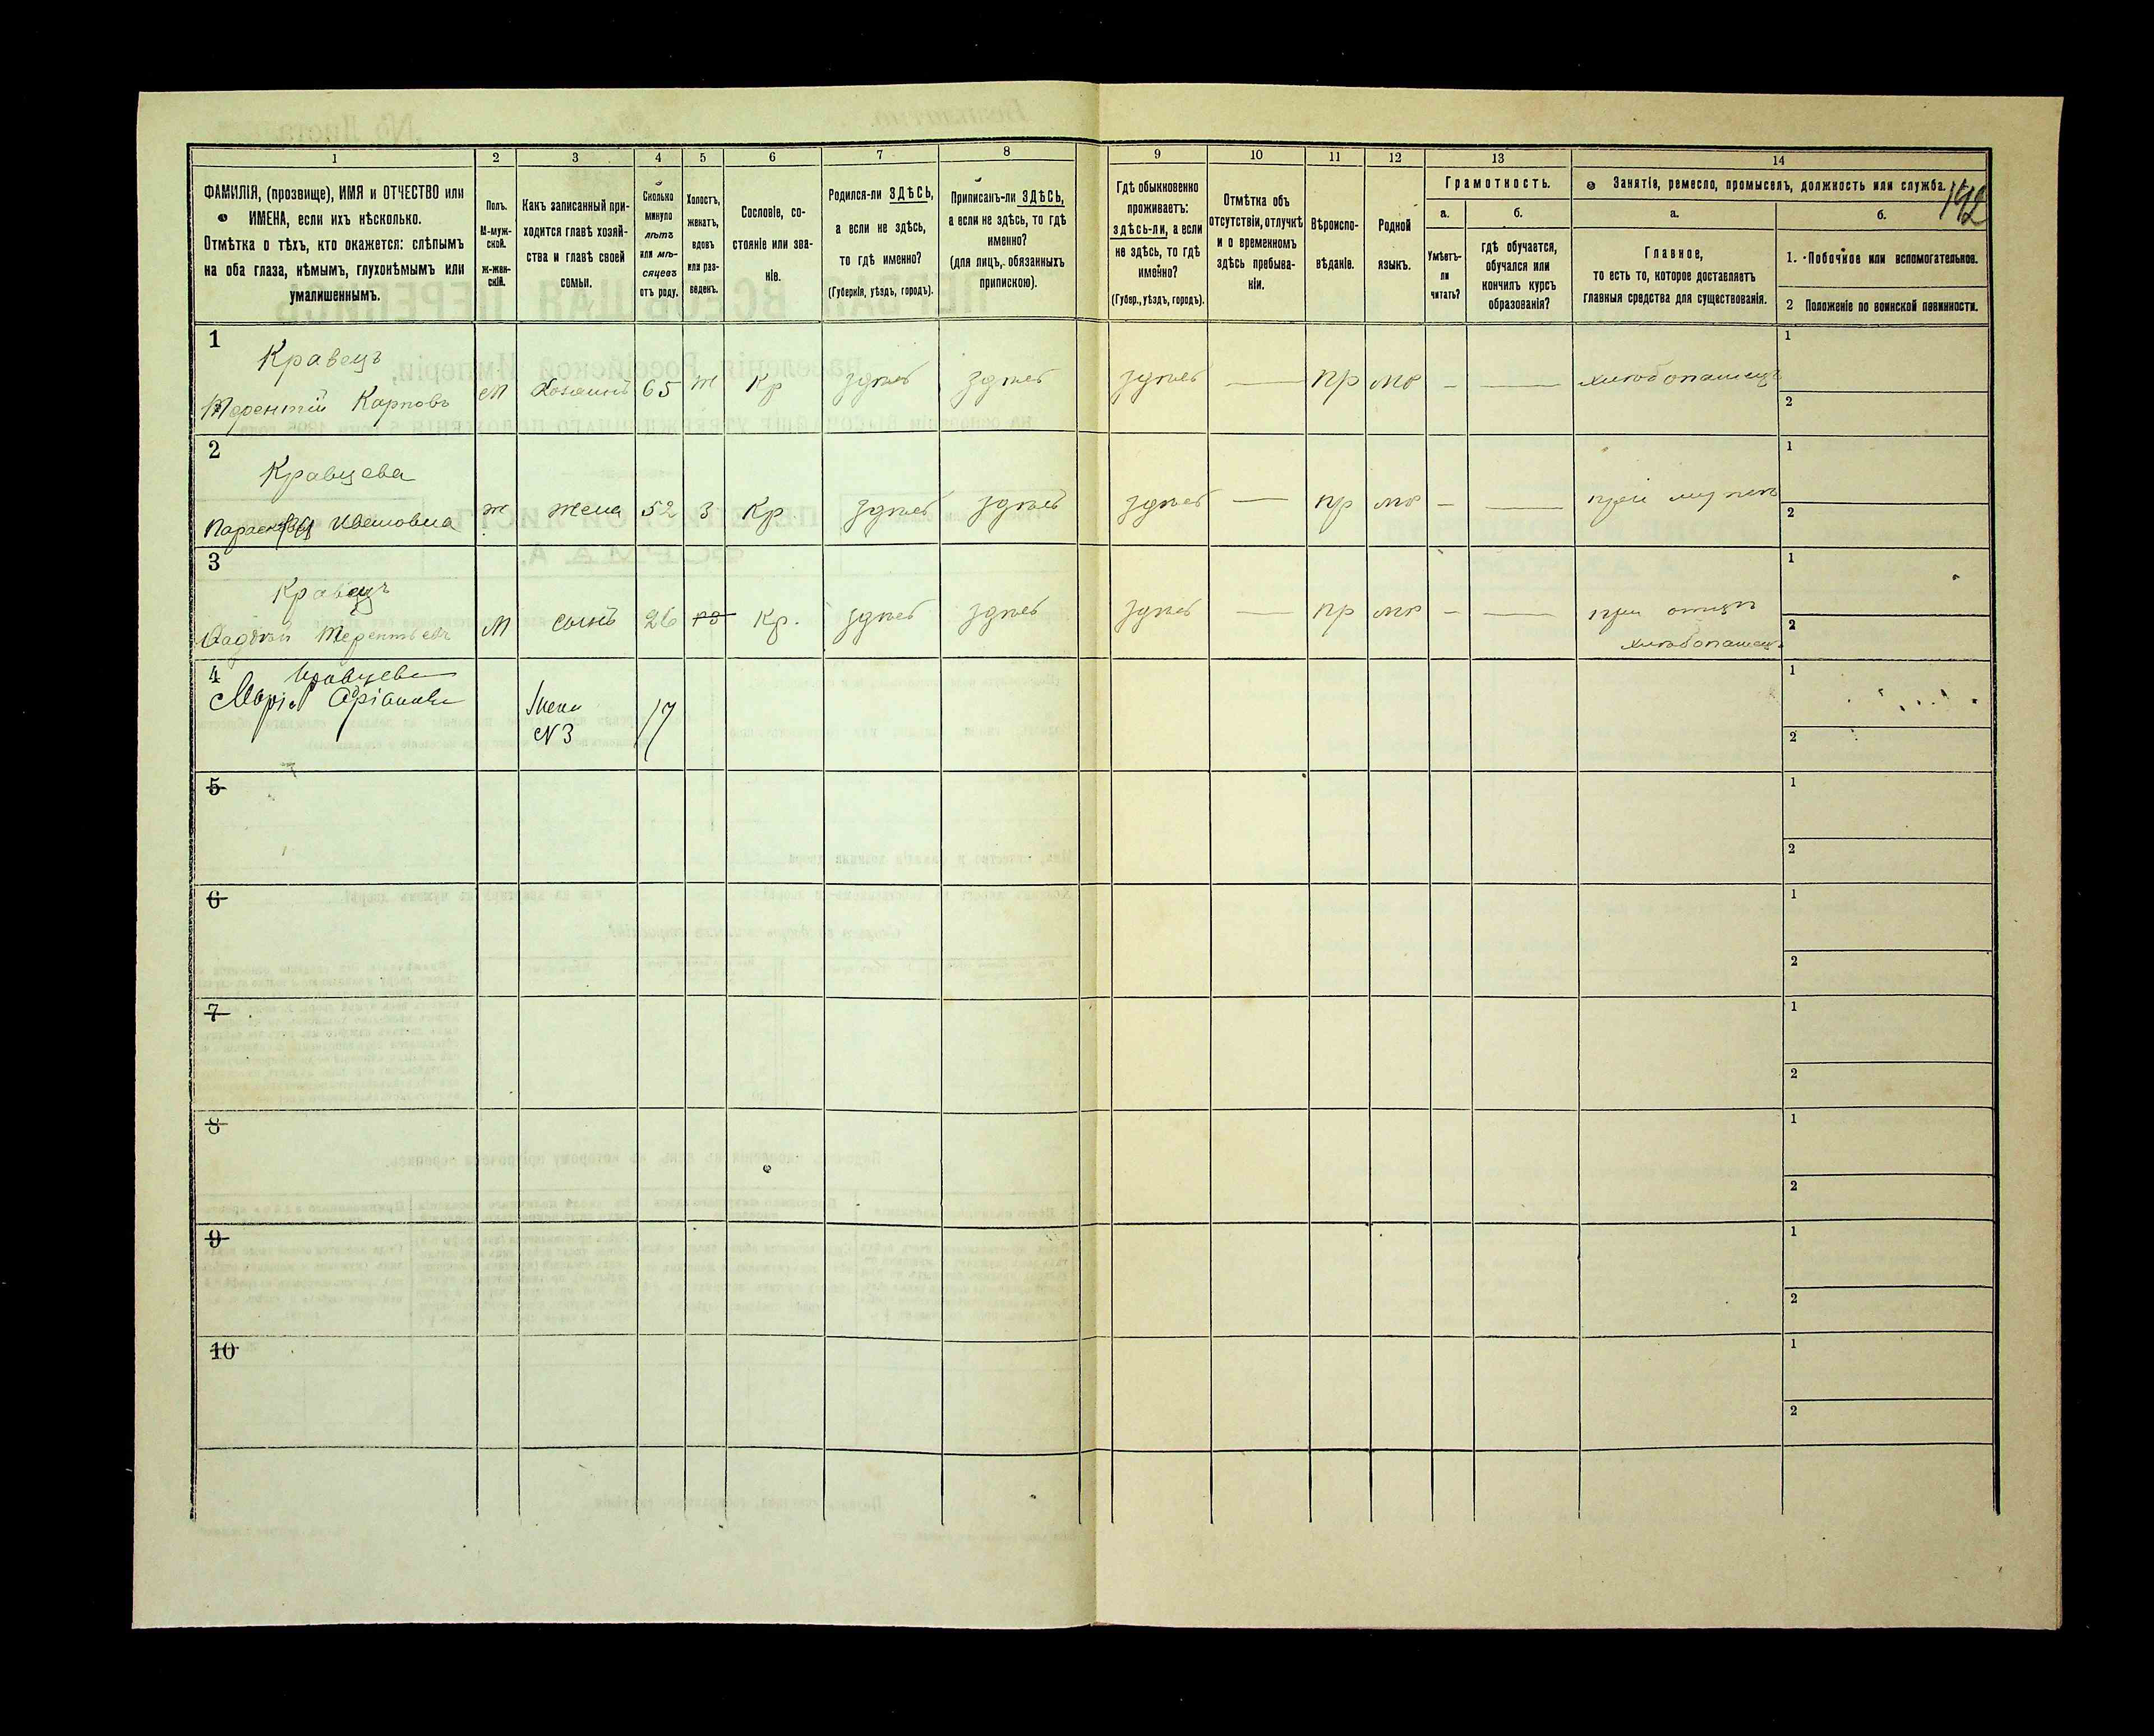 1 2 3 4 5 6 7 8 9 10 11 12 13 14
ФАМИЛІЯ, (прозвище), ИМЯ и ОТЧЕСТВО или
ИМЕНА, если ихъ нѣсколько.
Отмѣтка о тѣхъ, кто окажется: слѣпымъ
на оба глаза, нѣмымъ, глухонѣмымъ или
умалишеннымъ.
Полъ.
М-муж-
ской.
ж-жен-
скій.
Какъ записанный при-
ходится главѣ хозяй-
ства и главѣ своей
семьи.
Сколько
минуло
лѣтъ
или мѣ-
сяцевъ
отъ роду.
Холостъ,
женатъ,
вдовъ
или раз-
веденъ.
Сословіе, со-
стояніе или зва-
ніе.
Родился-ли ЗДѢСЬ,
а если не здѣсь,
то гдѣ именно?
(Губернія, уѣздъ, городъ).
Приписанъ-ли ЗДѢСЬ,
а если не здѣсь, то гдѣ
именно?
(для лицъ, обязанныхъ
припискою).
Гдѣ обыкновенно
проживаетъ:
здѣсь-ли, а если
не здѣсь, то гдѣ
именно?
(Губер., уѣздъ, городъ).
Отмѣтка объ
отсутствіи, отлучкѣ
и о временномъ
здѣсь пребыва-
ніи.
Вѣроиспо-
вѣданіе.
Родной
языкъ.
Грамотность.
а.
Умѣетъ-
ли
читать?
б.
гдѣ обучается,
обучался или
кончилъ курсъ
образованія?
Занятіе, ремесло, промыселъ, должность или служба.
192
а.
Главное,
то есть то, которое доставляетъ
главныя средства для существованія.
б.
1. Побочное или вспомогательное.
2 Положеніе по воинской повинности.
1
Кравецъ
Терентій Карповъ М Хозяинъ 65 ж Кр здѣсь здѣсь здѣсь — пр мр - — хлѣбопашецъ
1
2
2
Кравцева
Параскева Ивановна ж жена 52 З Кр. здѣсь здѣсь здѣсь — пр мр - — при мужѣ
1
2
3
Кравецъ
Фадѣй Терентьевъ М сынъ 26 Кр. здѣсь здѣсь здѣсь — пр мр - — при отцѣ
хлѣбопашецъ
1
2
4 Кравцева
Марія
Жена
N3
17
1
2
5
1
2
6
1
2
7
1
2
8
1
2
9
1
2
10
1
2